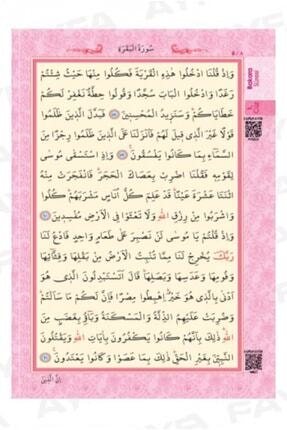 سُورَةُ الْبَقَرَةِ
٨
وَاِذْ قُلْنَا ادْخُلُوا هٰذِهِ الْقَرْيَةَ فَكُلُوا مِنْهَا حَيْثُ شِئْتُمْ
رَغَدًا وَادْخُلُوا الْبَابَ سُجَّدًا وَقُولُوا حِطَّةٌ نَغْفِرْ لَكُمْ
خَطَايَاكُمْ وَسَنَزِيدُ الْمُحْسِنِينَ ٥٨ فَبَدَّلَ الَّذِينَ ظَلَمُوا
قَوْلًا غَيْرَ الَّذِي قِيلَ لَهُمْ فَاَنْزَلْنَا عَلَى الَّذِينَ ظَلَمُوا رِجْزًا مِنَ
السَّمَاءِ بِمَا كَانُوا يَفْسُقُونَ ٥٩ وَاِذِ اسْتَسْقٰى مُوسٰى
لِقَوْمِهِ فَقُلْنَا اضْرِبْ بِعَصَاكَ الْحَجَرَ فَانْفَجَرَتْ مِنْهُ
اثْنَتَا عَشْرَةَ عَيْنًا قَدْ عَلِمَ كُلُّ اُنَاسٍ مَشْرَبَهُمْ كُلُوا
وَاشْرَبُوا مِنْ رِزْقِ اللهِ وَلَا تَعْثَوْا فِي الْاَرْضِ مُفْسِدِينَ ٦٠
وَاِذْ قُلْتُمْ يَا مُوسٰى لَنْ نَصْبِرَ عَلٰى طَعَامٍ وَاحِدٍ فَادْعُ لَنَا
رَبَّكَ يُخْرِجْ لَنَا مِمَّا تُنْبِتُ الْاَرْضُ مِنْ بَقْلِهَا وَقِثَّائِهَا
وَفُومِهَا وَعَدَسِهَا وَبَصَلِهَا قَالَ اَتَسْتَبْدِلُونَ الَّذِي هُوَ
اَدْنٰى بِالَّذِي هُوَ خَيْرٌ اِهْبِطُوا مِصْرًا فَاِنَّ لَكُمْ مَا سَاَلْتُمْ
وَضُرِبَتْ عَلَيْهِمُ الذِّلَّةُ وَالْمَسْكَنَةُ وَبَاؤُ بِغَضَبٍ مِنَ
اللهِ ذٰلِكَ بِاَنَّهُمْ كَانُوا يَكْفُرُونَ بِاٰيَاتِ اللهِ وَيَقْتُلُونَ
النَّبِيِّنَ بِغَيْرِ الْحَقِّ ذٰلِكَ بِمَا عَصَوْا وَكَانُوا يَعْتَدُونَ ٦١
اِنَّ الَّذِينَ
Bakara